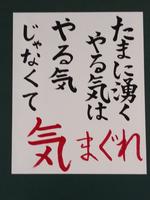 たまに湧く
やる気は
やる気
じゃなくて
気まぐれ